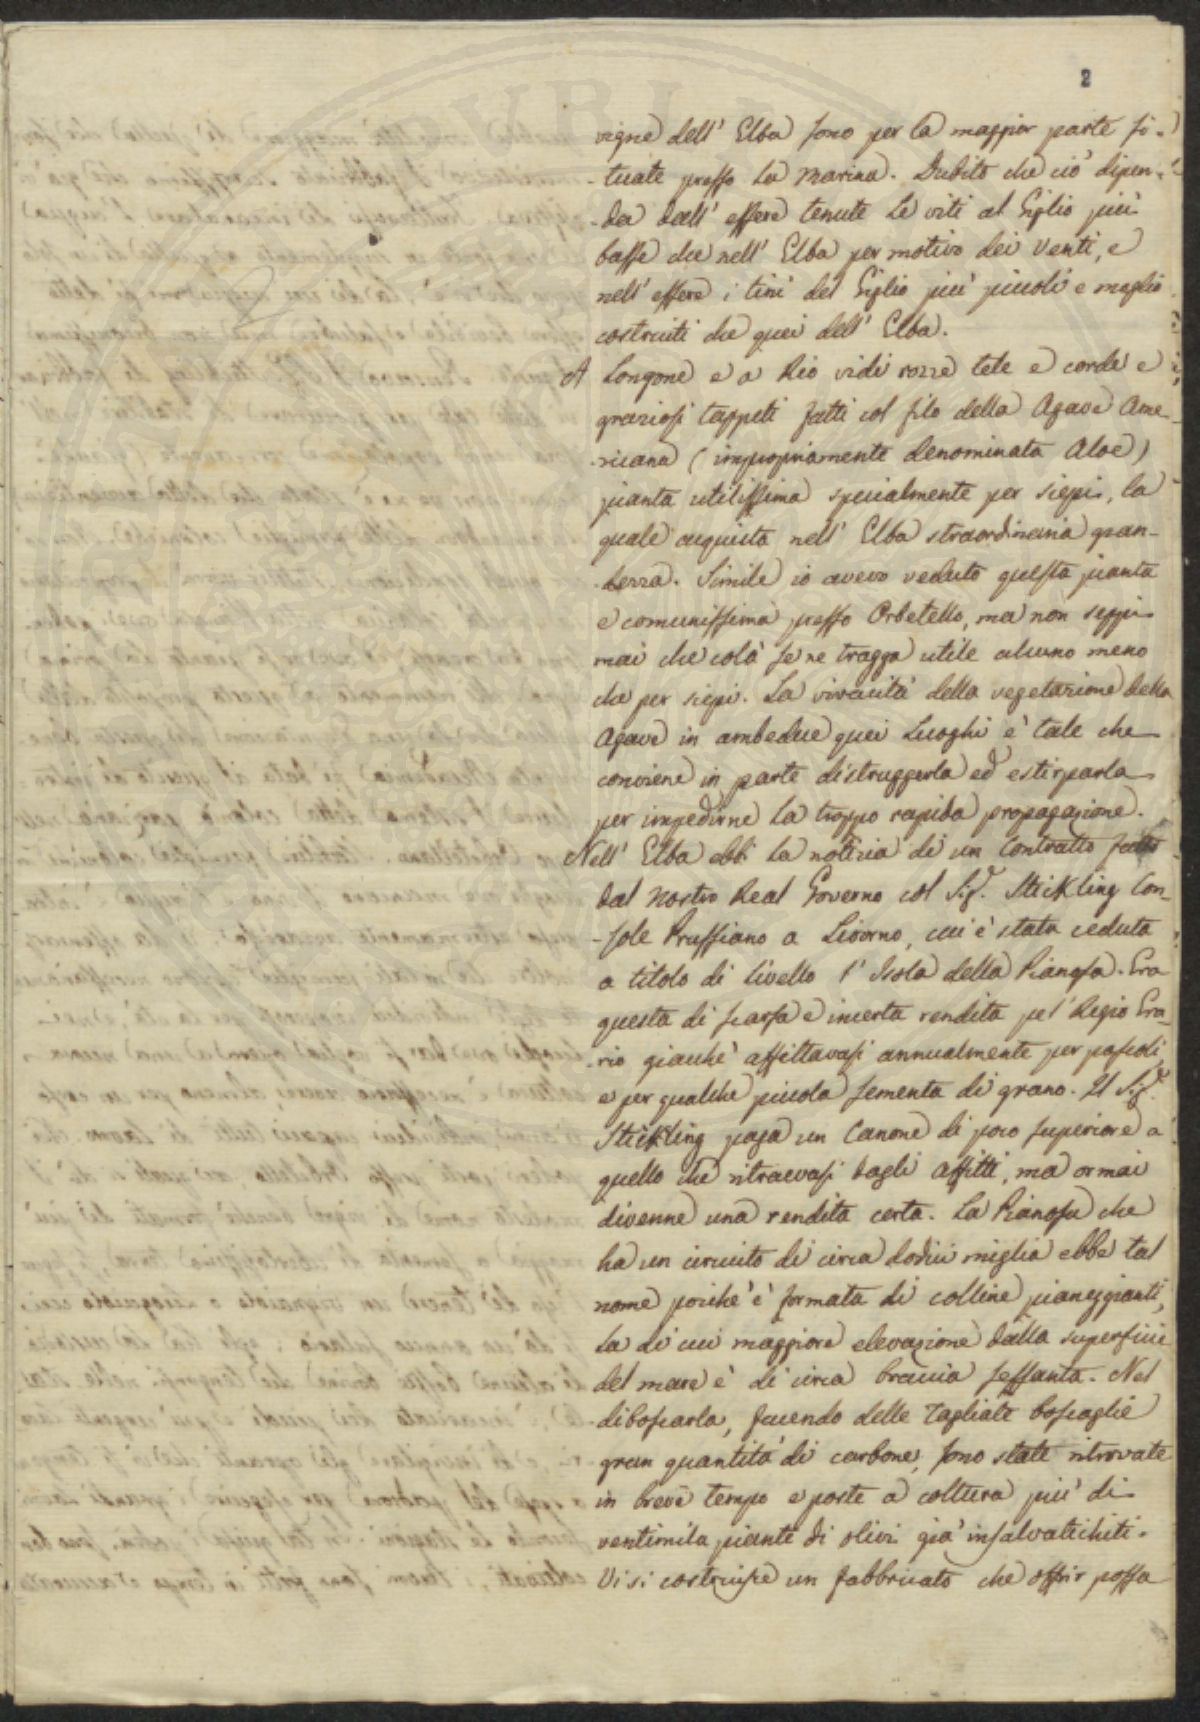 2
vigne dell' Elba sono per la maggior parte si-
-tuate presso la Marina. Dubito che ciò dipen-
-da dall' essere tenute le viti al Giglio più
basse che nell' Elba per motivo dei Venti, e
nell' essere i tini del Giglio più piccoli e meglio
costruiti che quei dell' Elba.
A Longone e a Rio vidi rozze tele e corde e
graziosi tappeti fatti col filo della Agave Ame-
-ricana (impropriamente denominata Aloe)
pianta utilissima specialmente per siepi, la
quale acquista nell' Elba straordinaria gran-
-dezza. Simile io avevo veduto questa pianta
e comunissima presso Orbetello, ma non seppi
mai che colà se ne tragga utile alcuno meno
che per siepi. La vivacità della vegetazione della
Agave in ambedue quei Luoghi è tale che
conviene in parte distruggerla ed estirparla
per impedirne la troppo rapida propagazione.
Nell' Elba ebbi la notizia di un Contratto fatto
dal nostro Real Governo col Sig.r Stickling Con-
-sole Prussiano a Livorno, cui è stata ceduta
a titolo di livello l' Isola della Pianosa. Era
questa di scarsa e incerta rendita pel Regio Era-
-rio giacchè affittavasi annualmente per pascoli,
e per qualche piccola sementa di grano. Il Sig.r
Stickling paga un Canone di poco superiore a
quello che ritraevasi dagli affitti, ma ormai
divenne una rendita certa. La Pianosa che
ha un circuito di circa dodici miglia ebbe tal
nome poichè è formata di colline pianeggianti,
la di cui maggiore elevazione dalla superficie
del mare è di circa braccia sessanta. Nel
diboscarla, facendo delle tagliate boscaglie
gran quantità di carbone, sono state ritrovate
in breve tempo e poste a coltura più di
ventimila piante di olivi già insalvatichiti.
Vi si costruisce un fabbricato che offrir possa